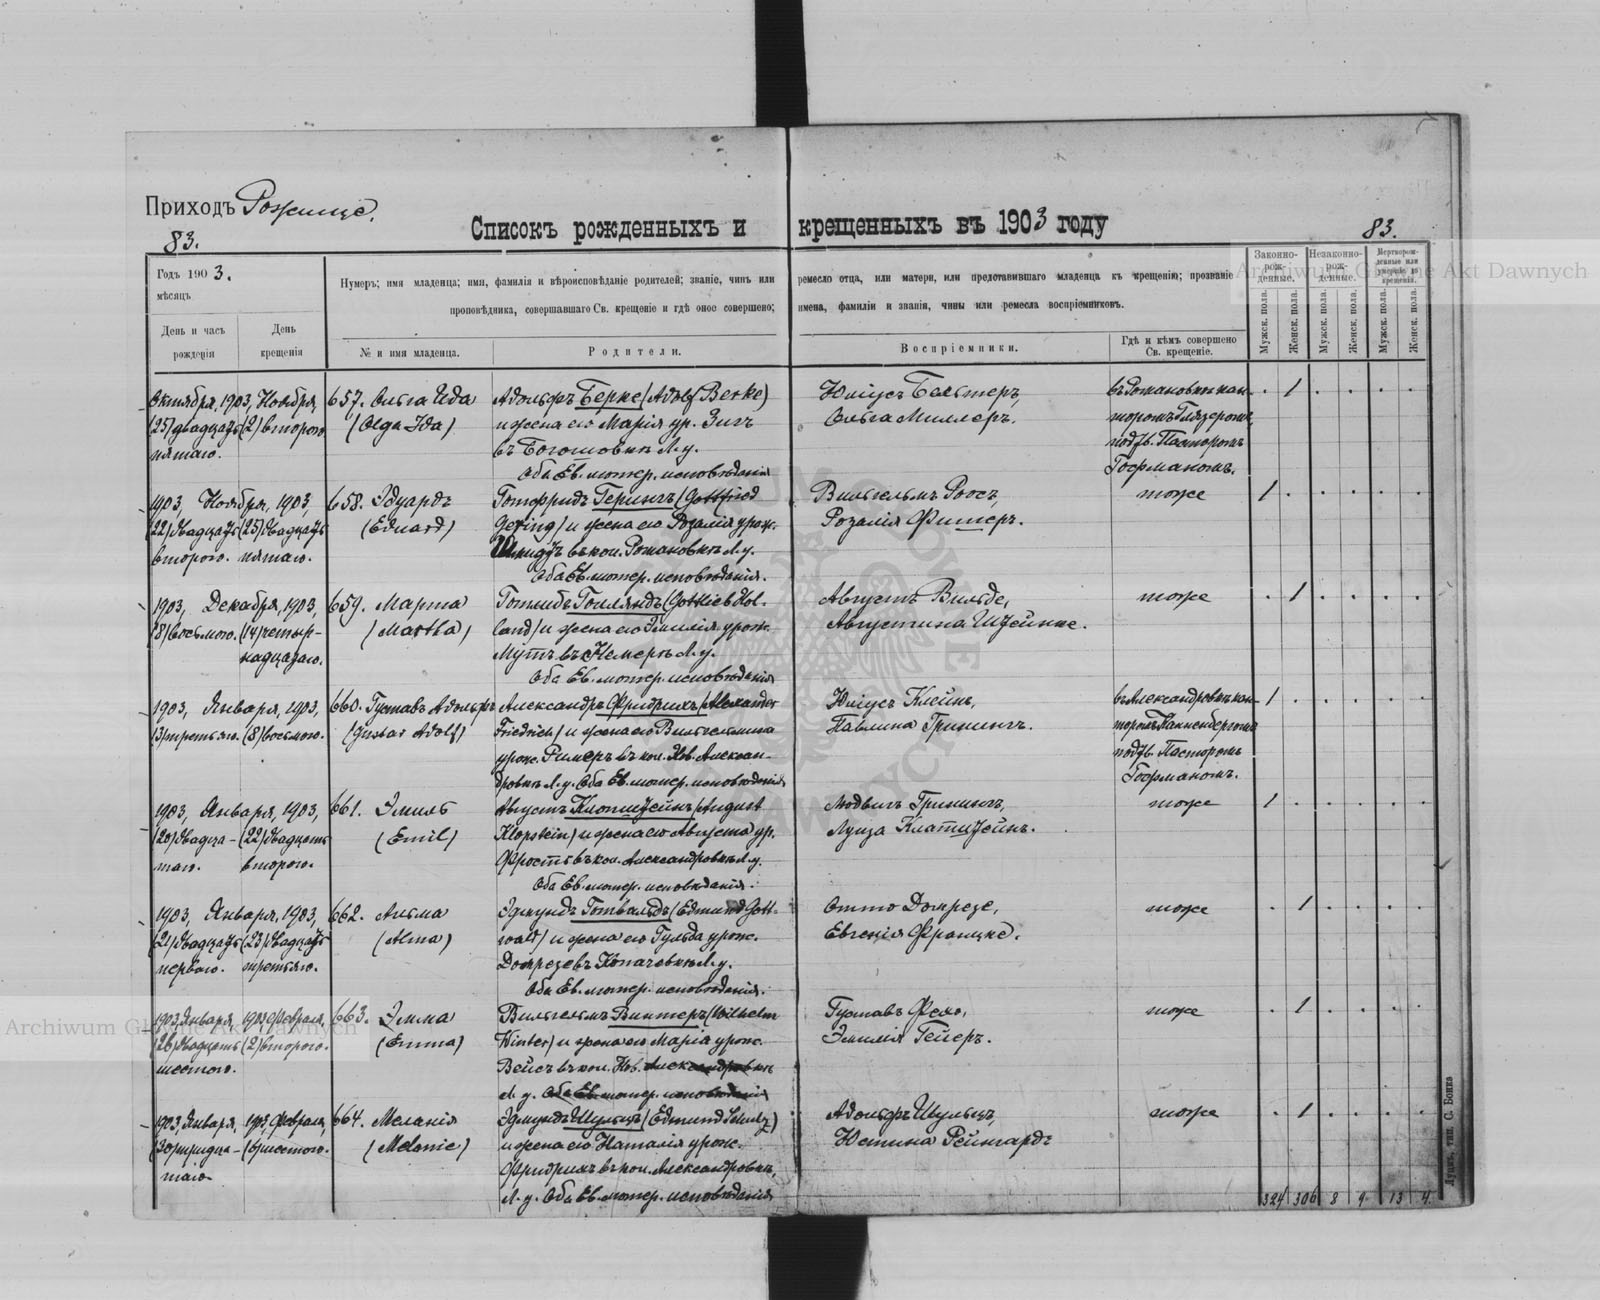 Приходъ Рожище.
83.
Списокъ рожденныхъ и крещенныхъ въ 1903 году
83.
Годъ 1903.
мѣсяцъ
День и часъ рожденія
День крещенія
Нумеръ; имя младенца; имя, фамилія и вѣроисповѣданіе родителей; званіе, чинъ или ремесло отца, или матери, или предотавившаго младенца къ крещенію; прозваніе
проповѣдника, совершавшаго Св. крещеніе и гдѣ оное совершено; имена, фамиліи и званія, чины или ремесла воспріемниковъ.
№ и имя младенца.
Родители.
Воспріемники.
Гдѣ и кѣмъ совершено
Св. крещеніе.
Законно-рож-денные.
Незаконно-рож-денные.
Мертворож-денные или умершіе до крещенія.
Мужск. пола.
Женск. пола.
Мужск. пола.
Женск. пола.
Мужск. пола.
Женск. пола.
Октября, 1903, Ноября, 657. Ольга Ида Адольфъ Берке (Adolf Berke) Юліусъ Бельтеръ, въ Романовкѣ кан-
(25) двадцать (2) второго (Olga Ida) и жена его Марія ур. Зигъ Ольга Миллеръ. торомъ Глязеромъ,
пятаго. въ Богошовкѣ Л. у. подтв. Пасторомъ
Оба Ев. лютер. исповѣданія Гофманомъ.
1903, Ноября, 1903, 658. Эдуардъ Готфридъ Герингъ (Gottfried Вильгельмъ Роосъ, тоже 1
(22) двадцать (25) двадцать (Eduard) Gering) и жена его Розалія урож. Розалія Фишеръ.
второго. пятаго. Шмидтъ въ кол. Романовкѣ Л. у.
Оба Ев. лютер. исповѣданія.
1903, Декабря, 1903, 659. Марта Готлибъ Голландъ (Gottlieb Hol- Августъ Вильде, тоже 1
(8) восьмого. (14) четыр- (Martha) land) и жена его Эмилія урож. Августина Штейнке.
надцатаго. Мутъ въ Немерѣ Л. у.
Оба Ев. лютер. исповѣданія
1903, Января, 1903, 660. Густавъ Адольфъ Александръ Фридрихъ (Alexander Юліусъ Клейнъ, въ Александровкѣ кан- 1
(3) третьяго. (8) восьмого. (Gustav Adolf) Friedrich) и жена его Вильгельмина Павлина Грининъ. торомъ Канненбергомъ
урож. Римеръ въ кол. Нов. Алексан- подтв. Пасторомъ
дровкѣ Л. у. Оба Ев. лютер. исповѣданія Гофманомъ.
1903, Января, 1903, 661. Эмиль Августъ Клопштейнъ (August Людвигъ Грининъ, тоже 1
(20) двадца- (22) двадцать (Emil) Klopstein) и жена его Августа ур. Луиза Клатштейнъ.
таго. второго. Фростъ въ кол. Александровкѣ Л. у.
Оба Ев. лютер. исповѣданія.
1903, Января, 1903, 662. Альма Эдмундъ Готвальдъ (Edmund Gott- Отто Домрезе, тоже 1
(21) двадцать (23) двадцать (Alma) wald) и жена его Гульда урож. Евгенія Францке.
перваго. третьяго. Домрезе въ Копачевкѣ Л. у.
Оба Ев. лютер. исповѣданія.
1903, Января, 1903, Февраля, 663. Эмма Вильгельмъ Винтеръ (Wilhelm Густавъ тоже 1
(26) двадцать (2) второго. (Emma) Winter) и жена его Марія урож. Эмилія Гейеръ.
шестого. Вейсъ въ кол. Нов. Александровкѣ
Л. у. Оба Ев. лютер. исповѣданія
1903, Января, 1903, Февраля, 664. Меланія Эдмундъ Шульцъ (Edmund Schulz) Адольфъ Шульцъ, тоже 1
(30) тридца- (6) шестого. (Melanie) и жена его Наталія урож. Юстина Рейнгардъ
таго. Фридрихъ въ кол. Александровкѣ,
Л. у. Оба Ев. лютер. исповѣданія
324 306 8 9 13 4.
Луцкъ, тип. С. Бонка
Archiwum Główne Akt Dawnych
Archiwum Główne Akt Dawnych